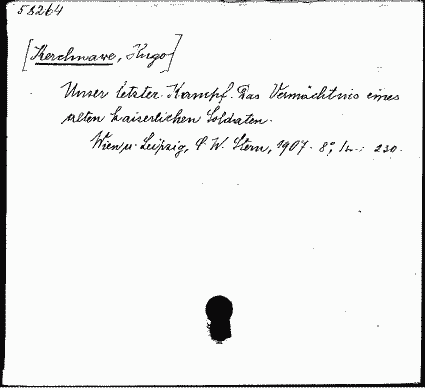 58264
[Kerchnawe, Hugo]
Unser letzter Kampf. Das Vermächtnis eines
alten kaiserlichen Soldaten.
Wien u. Leipzig, C. W. Stern, 1907. 8°, 230.